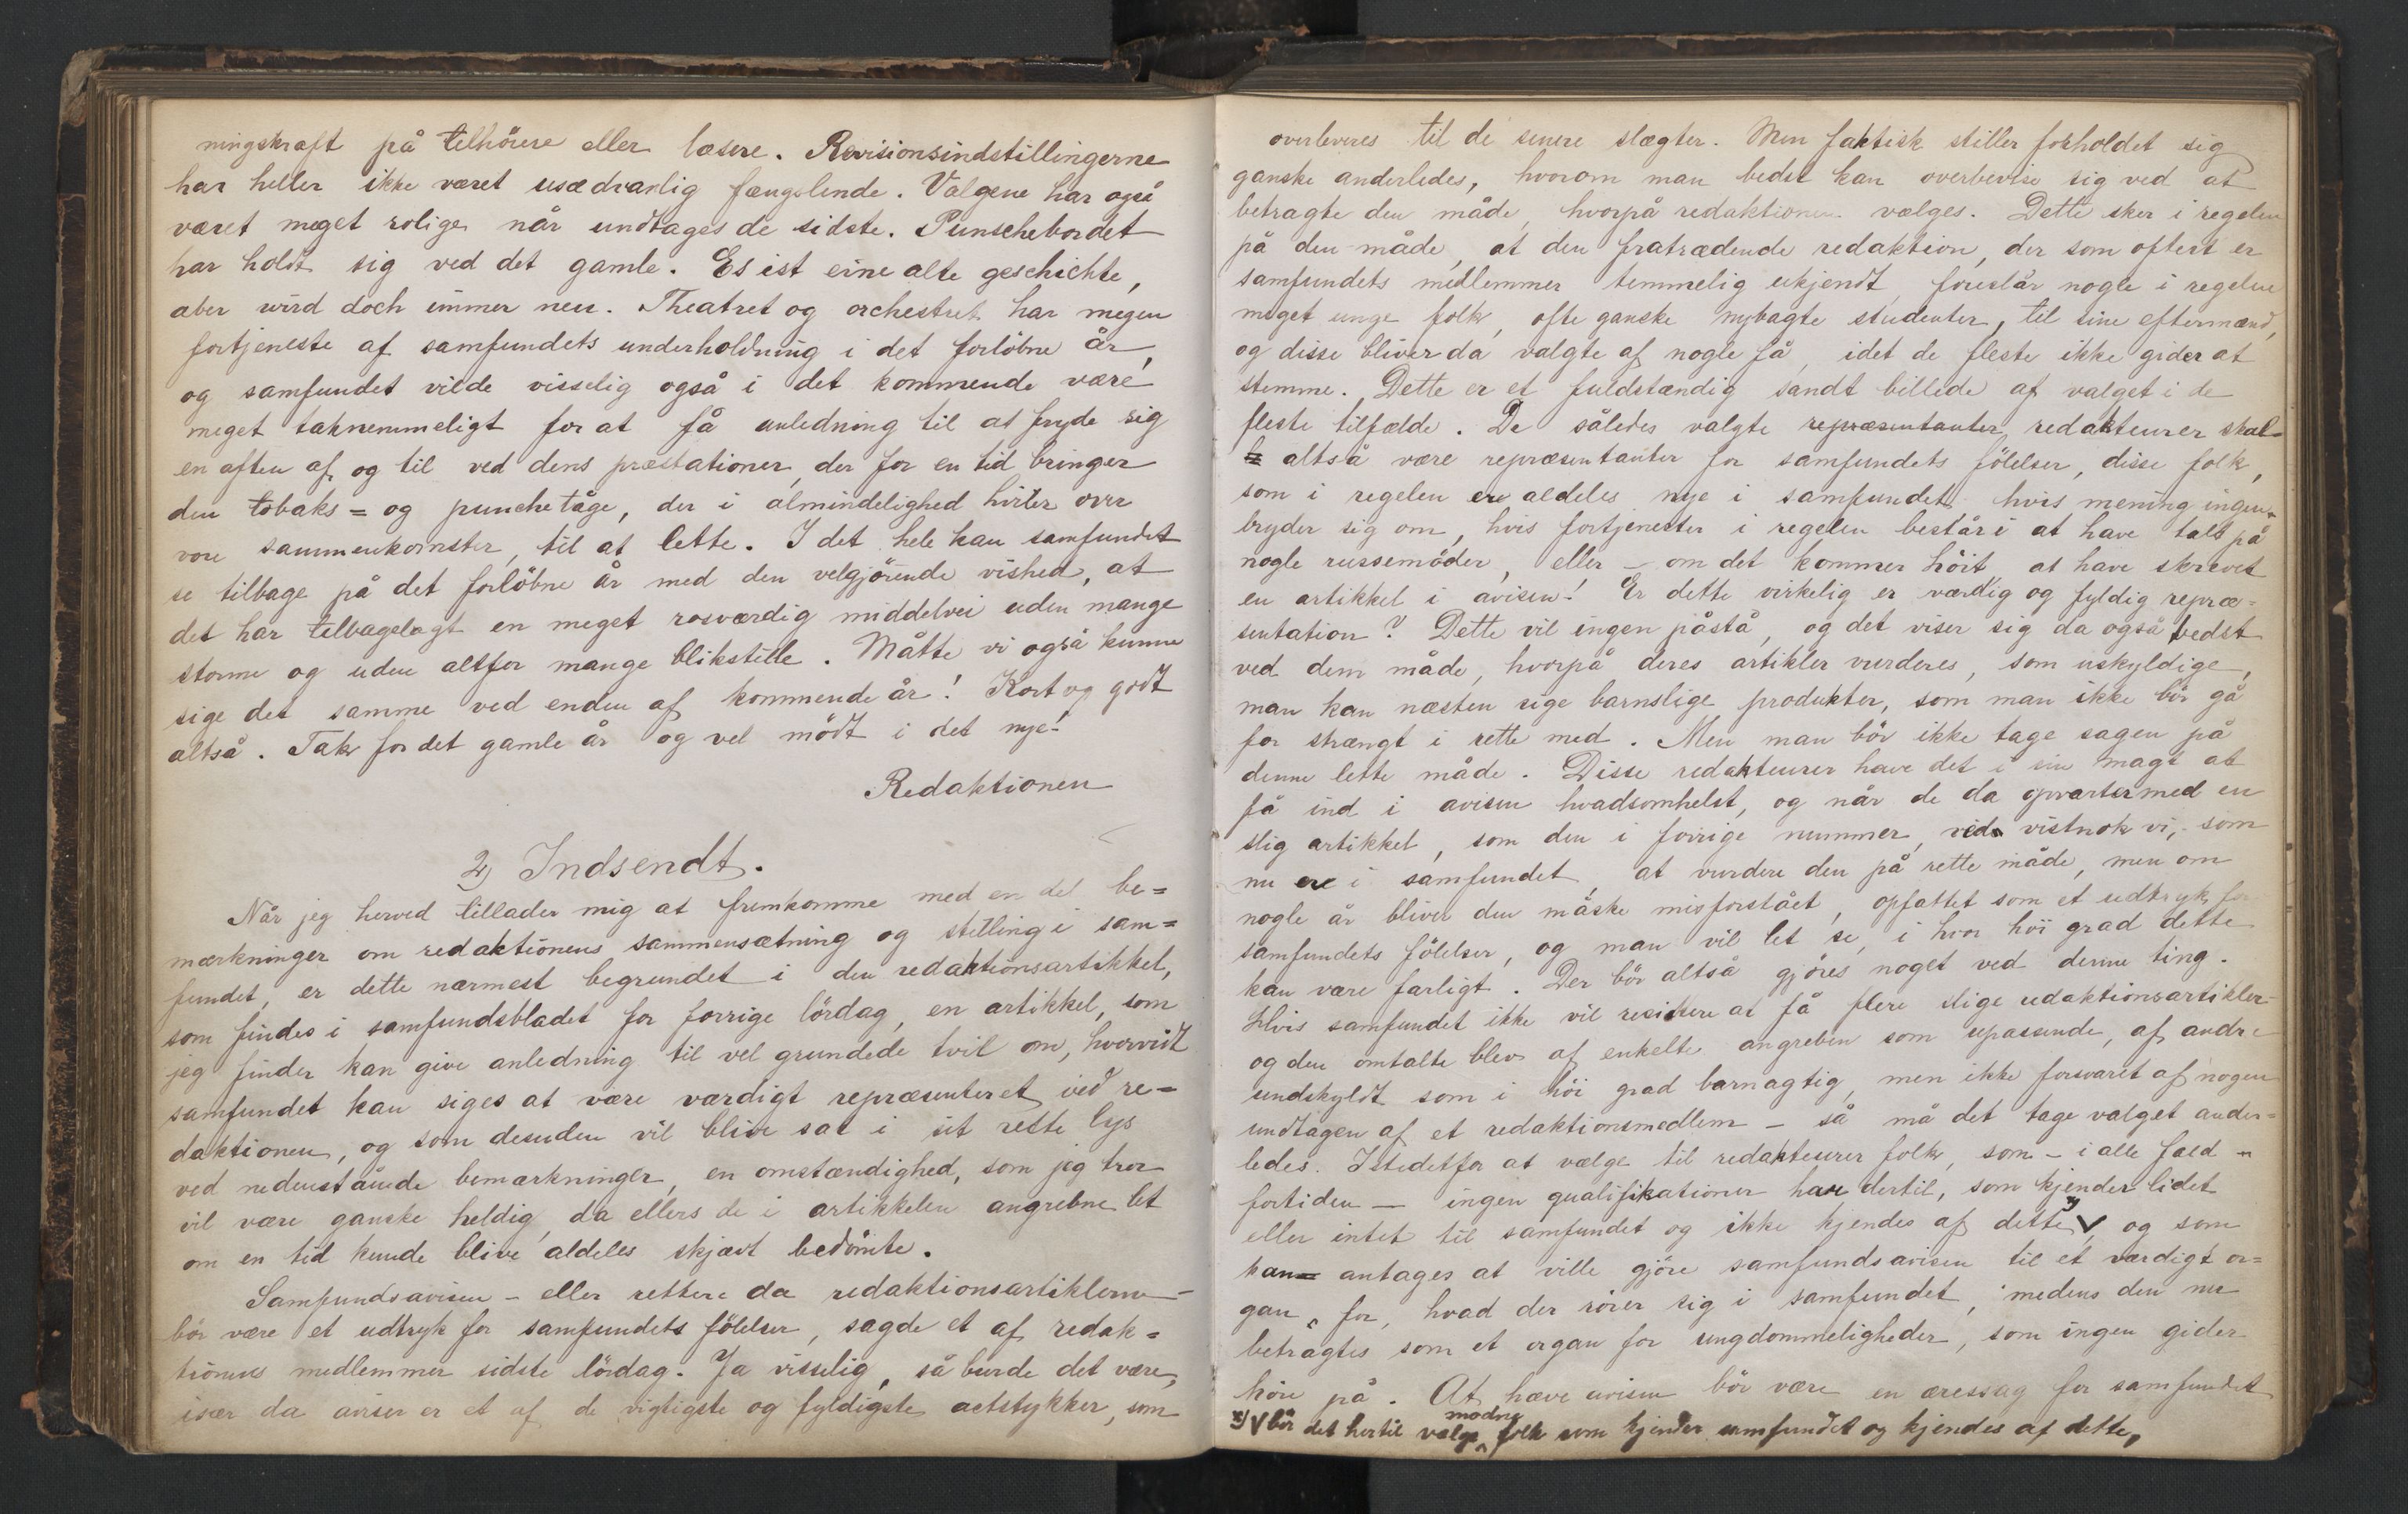 ningskraft på tilhörere eller læsere. Revisionsindstillingerne
har heller ikke været usædvanlig fængslende. Valgene har også
været meget rolige når undtages de sidste. Punschebordet
har holdt sig ved det gamle. Es ist eine alte geschichte,
aber wird doch immer neu. Theatret og orchestret har megen
fortjeneste af samfundets underholdning i det forløbne år,
og samfundet vilde visselig også i det kommende være
meget taknemmeligt for at få anledning til at fryde sig
en aften af og til ved dens præstationer, der for en tid bringer
den tobaks= og punchetåge, der i almindelighed hviler over
vore sammenkomster, til at lette. I det hele kan samfundet
se tilbage på det forløbne år med den velgjørende vished, at
det har tilbagelagt en meget rosværdig middelvei uden mange
storme og uden altfor mange blikstille. Måtte vi også kunne
sige det samme ved enden af kommende år! Kort og godt
altså. Tak for det gamle år og vel mödt i det nye!
Redaktionen
2) Indsendt.
Når jeg herved tillader mig at fremkomme med en del be=
mærkninger om redaktionens sammensætning og stilling i sam=
fundet, er dette nærmest begrundet i den redaktionsartikkel,
som findes i samfundsbladet for forrige lördag, en artikkel, som
jeg finder kan give anledning til vel grundede tvil om, hvorvidt
samfundet kan siges at være værdigt repræsenteret ved re=
daktionen, og som desuden vil blive sat i sit rette lys
ved nedenstående bemærkninger, en omstændighed, som jeg tror
vil være ganske heldig, da ellers de i artikkelen angrebne let
om en tid kunde blive aldeles skjævt bedömte.
Samfundsavisen - eller rettere da redaktionsartiklerne -
bör være et udtryk for samfundets fölelser, sagde et af redak=
tionens medlemmer sidste lördag. Ja visselig, så burde det være,
især da aviser er et af de vigtigste og fyldigste actstykker, som
overleveres til de senere slægter. Men faktisk stiller forholdet sig
ganske anderledes, hvorom man bedst kan overbevise sig ved at
betragte den måde, hvorpå redaktionen vælges. Dette sker i regelen
på den måde, at den fratrædende redaktion, der som oftest er
samfundets medlemmer temmelig ukjendt, foreslår nogle i regelen
meget unge folk, ofte ganske nybagte studenter, til sine eftermænd,
og disse bliver da valgte af nogle få, idet de fleste ikke gider at
stemme. Dette er et fuldstændig sandt billede af valget i de
fleste tilfælde. De således valgte repræsentanter, redakteurer skal=
altså være repræsentanter for samfundets fölelser, disse folk,
som i regelen ere aldeles nye i samfundet, hvis mening ingen
bryder sig om, hvis fortjenester i regelen består i at have talt på
nogle russemöder, eller - om det kommer höit at have skrevet
en artikkel i avisen! Er dette virkelig er værdig og fyldig repræ=
sentation? Dette vil ingen påstå, og det viser sig da også bedst
ved dem måde, hvorpå deres artikler vurderes, som uskyldige,
man kan næsten sige barnslige produkter, som man ikke bör gå
for strængt i rette med. Men man bör ikke tage sagen på
denne lette måde. Disse redakteurer have det i sin magt at
få ind i avisen hvadsomhelst, og når de da opvarter med en
slig artikkel, som den i forrige nummer, vide vistnok vi, som
nu ere i samfundet, at vurdere den på rette måde, men om
nogle år bliver den måske misforstået, opfattet som et udtryk for
samfundets fölelser, og man vil let se, i hvor höi grad dette
kan være farligt. Der bör altså gjöres noget ved denne ting.
Hvis samfundet ikke vil resikere at få flere slige redaktionsartikler -
og den omtalte blev af enkelte angreben som upassende, af andre
undskyldt som i höi grad barnagtig, men ikke forsvaret af nogen
undtagen af et redaktionsmedlem - så må det tage valget ander=
ledes. Istedetfor at vælge til redakteurer folk, som - i alle fald -
fortiden - ingen qualifikationer have dertil, som kjender lidet
eller intet til samfundet og ikke kjendes af dette x) V, og som
kan antages at ville gjöre samfundsavisen til et værdigt or=
gan for, hvad der rörer sig i samfundet, medens den nu
betragtes som et organ for ungdommeligheder, som ingen gider
höre på. At hæve avisen bör være en æressag for samfundet
x) V bör det hertil vælge modne folk som kjender samfundet og kjendes af dette,